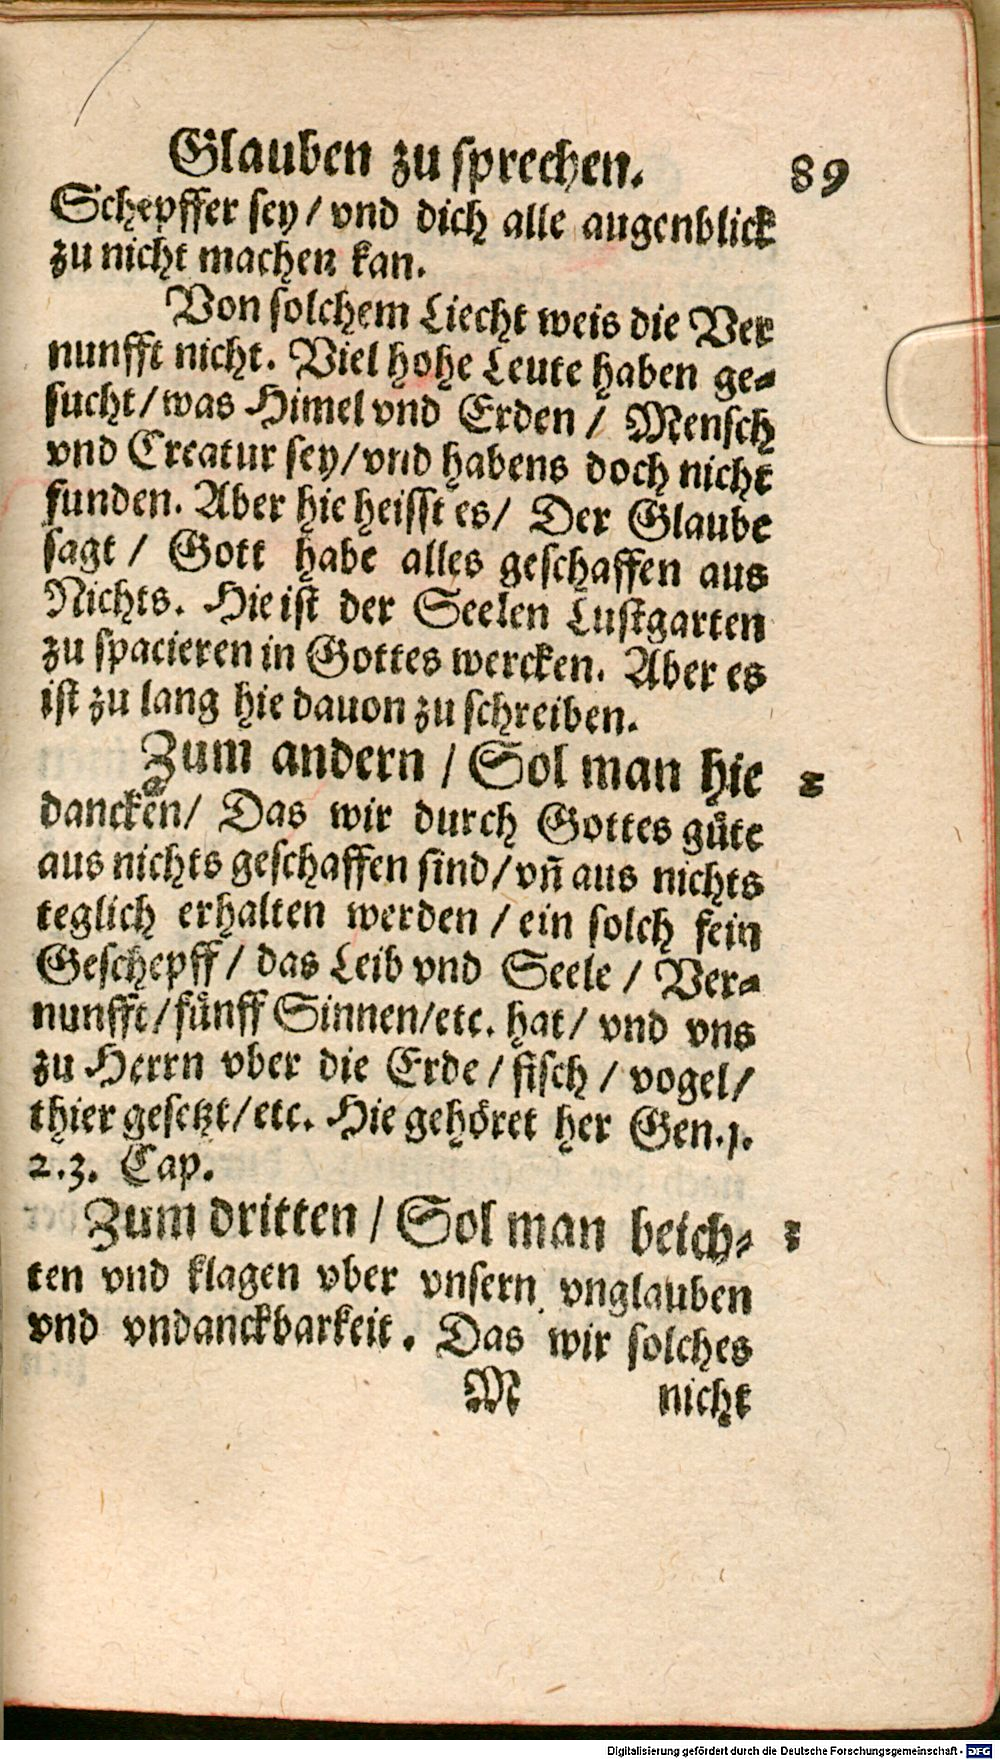 Glauben zu sprechen. 89
Schepffer sey / vnd dich alle augenblick
zu nicht machen kan.
Von solchem Liecht weis die Ver
nunfft nicht. Viel hohe Leute haben ge-
sucht / was Himel vnd Erden / Mensch
vnd Creatur sey / vnd habens doch nicht
funden. Aber hie heisst es / Der Glaube
sagt / Gott habe alles geschaffen aus
Nichts. Hie ist der Seelen Lustgarten
zu spacieren in Gottes wercken. Aber es
ist zu lang hie dauon zu schreiben.
Zum andern / Sol man hie 2
dancken / Das wir durch Gottes guͤte
aus nichts geschaffen sind / vñ aus nichts
teglich erhalten werden / ein solch fein
Geschepff / das Leib vnd Seele / Ver-
nunfft / fuͤnff Sinnen / etc. hat / vnd vns
zu Herrn vber die Erde / fisch / vogel /
thier gesetzt / etc. Hie gehoͤret her Gen. 1.
2. 3. Cap.
Zum dritten / Sol man beich- 3
ten vnd klagen vber vnsern vnglauben
vnd vndanckbarkeit. Das wir solches
M nicht
Digitalisierung gefördert durch die Deutsche Forschungsgemeinschaft - DFG